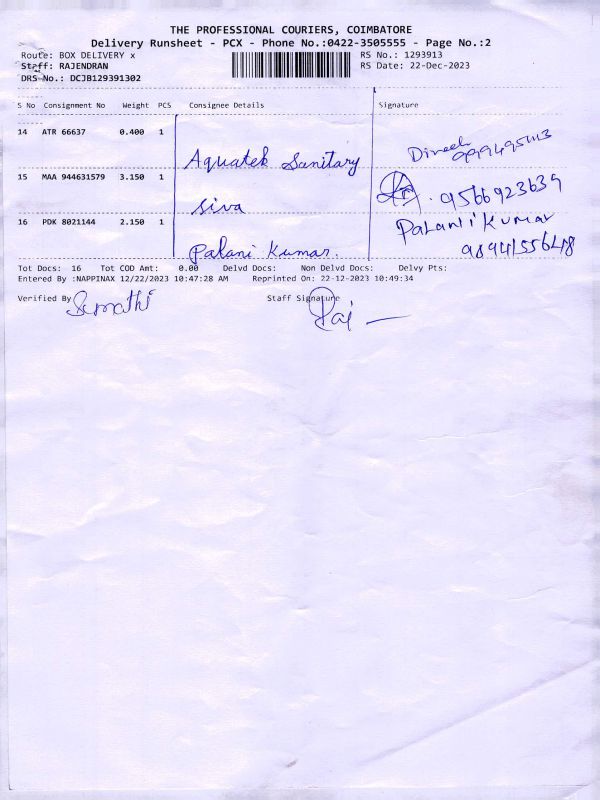 THE PROFESSIONAL COURIERS, COIMBATORE
Delivery Runsheet - PCX - Phone No.:0422-3505555 - Page No.:2
Route: BOX DELIVERY x
RS No.: 1293913
Staff: RAJENDRAN
RS Date: 22-Dec-2023
DRS No.: DCJB129391302
S No Consignment No Weight PCS Consignee Details Signature
14 ATR 66637 0.400 1
Aquatek Sanitary
Dinesh
15 MAA 944631579 3.150 1
Siva
9566923639
16 PDK 8021144 2.150 1
Palani Kumar.
Palani Kumar
Tot Docs: 16 Tot COD Amt: 0.00 Delvd Docs: Non Delvd Docs: Delvy Pts:
Entered By :NAPPINAX 12/22/2023 10:47:28 AM Reprinted On: 22-12-2023 10:49:34
Verified By Sumathi Staff Signature Raj